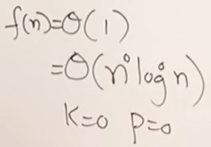 f(n)=Θ(1)
=Θ(n⁰log⁰n)
K=0 P=0